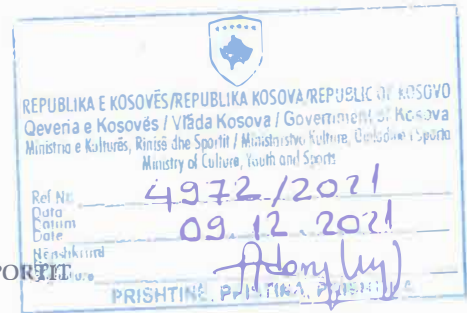 REPUBLIKA E KOSOVËS/REPUBLIKA KOSOVA/REPUBLIC OF KOSOVO
Qeveria e Kosovës / Vlada Kosova / Government of Kosova
Ministria e Kulturës, Rinisë dhe Sportit / Ministarstvo Kulture, Omladine i Sporta
Ministry of Culture, Youth and Sports
Ref Nr. 4972/2021
Data
Datum
Date 09.12.2021
Nënshkrimi
PORTIT
PRISHTINË, PRISTINA,